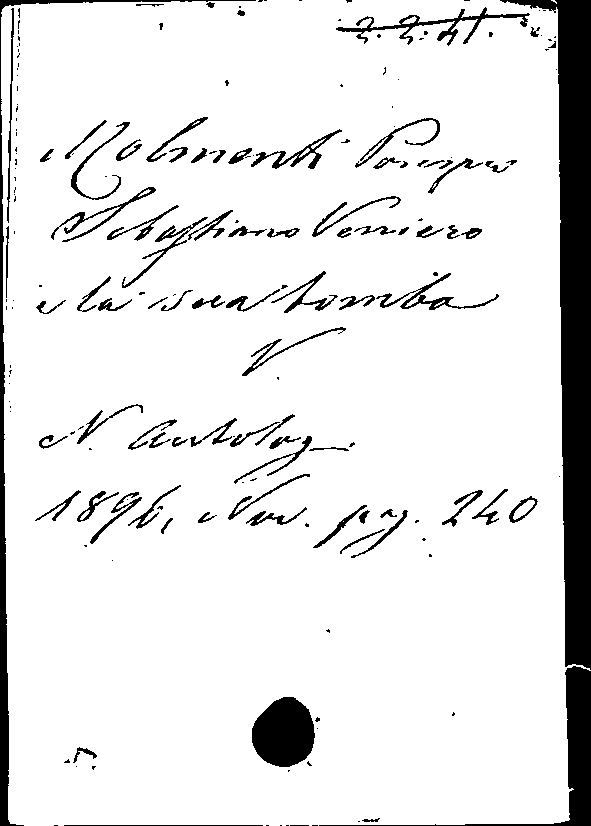 2.2.41.
Molmenti Pompeo
Sebastiano Veniero
e la sua tomba
V.
N. Antolog.
1896, Nov. pag. 240